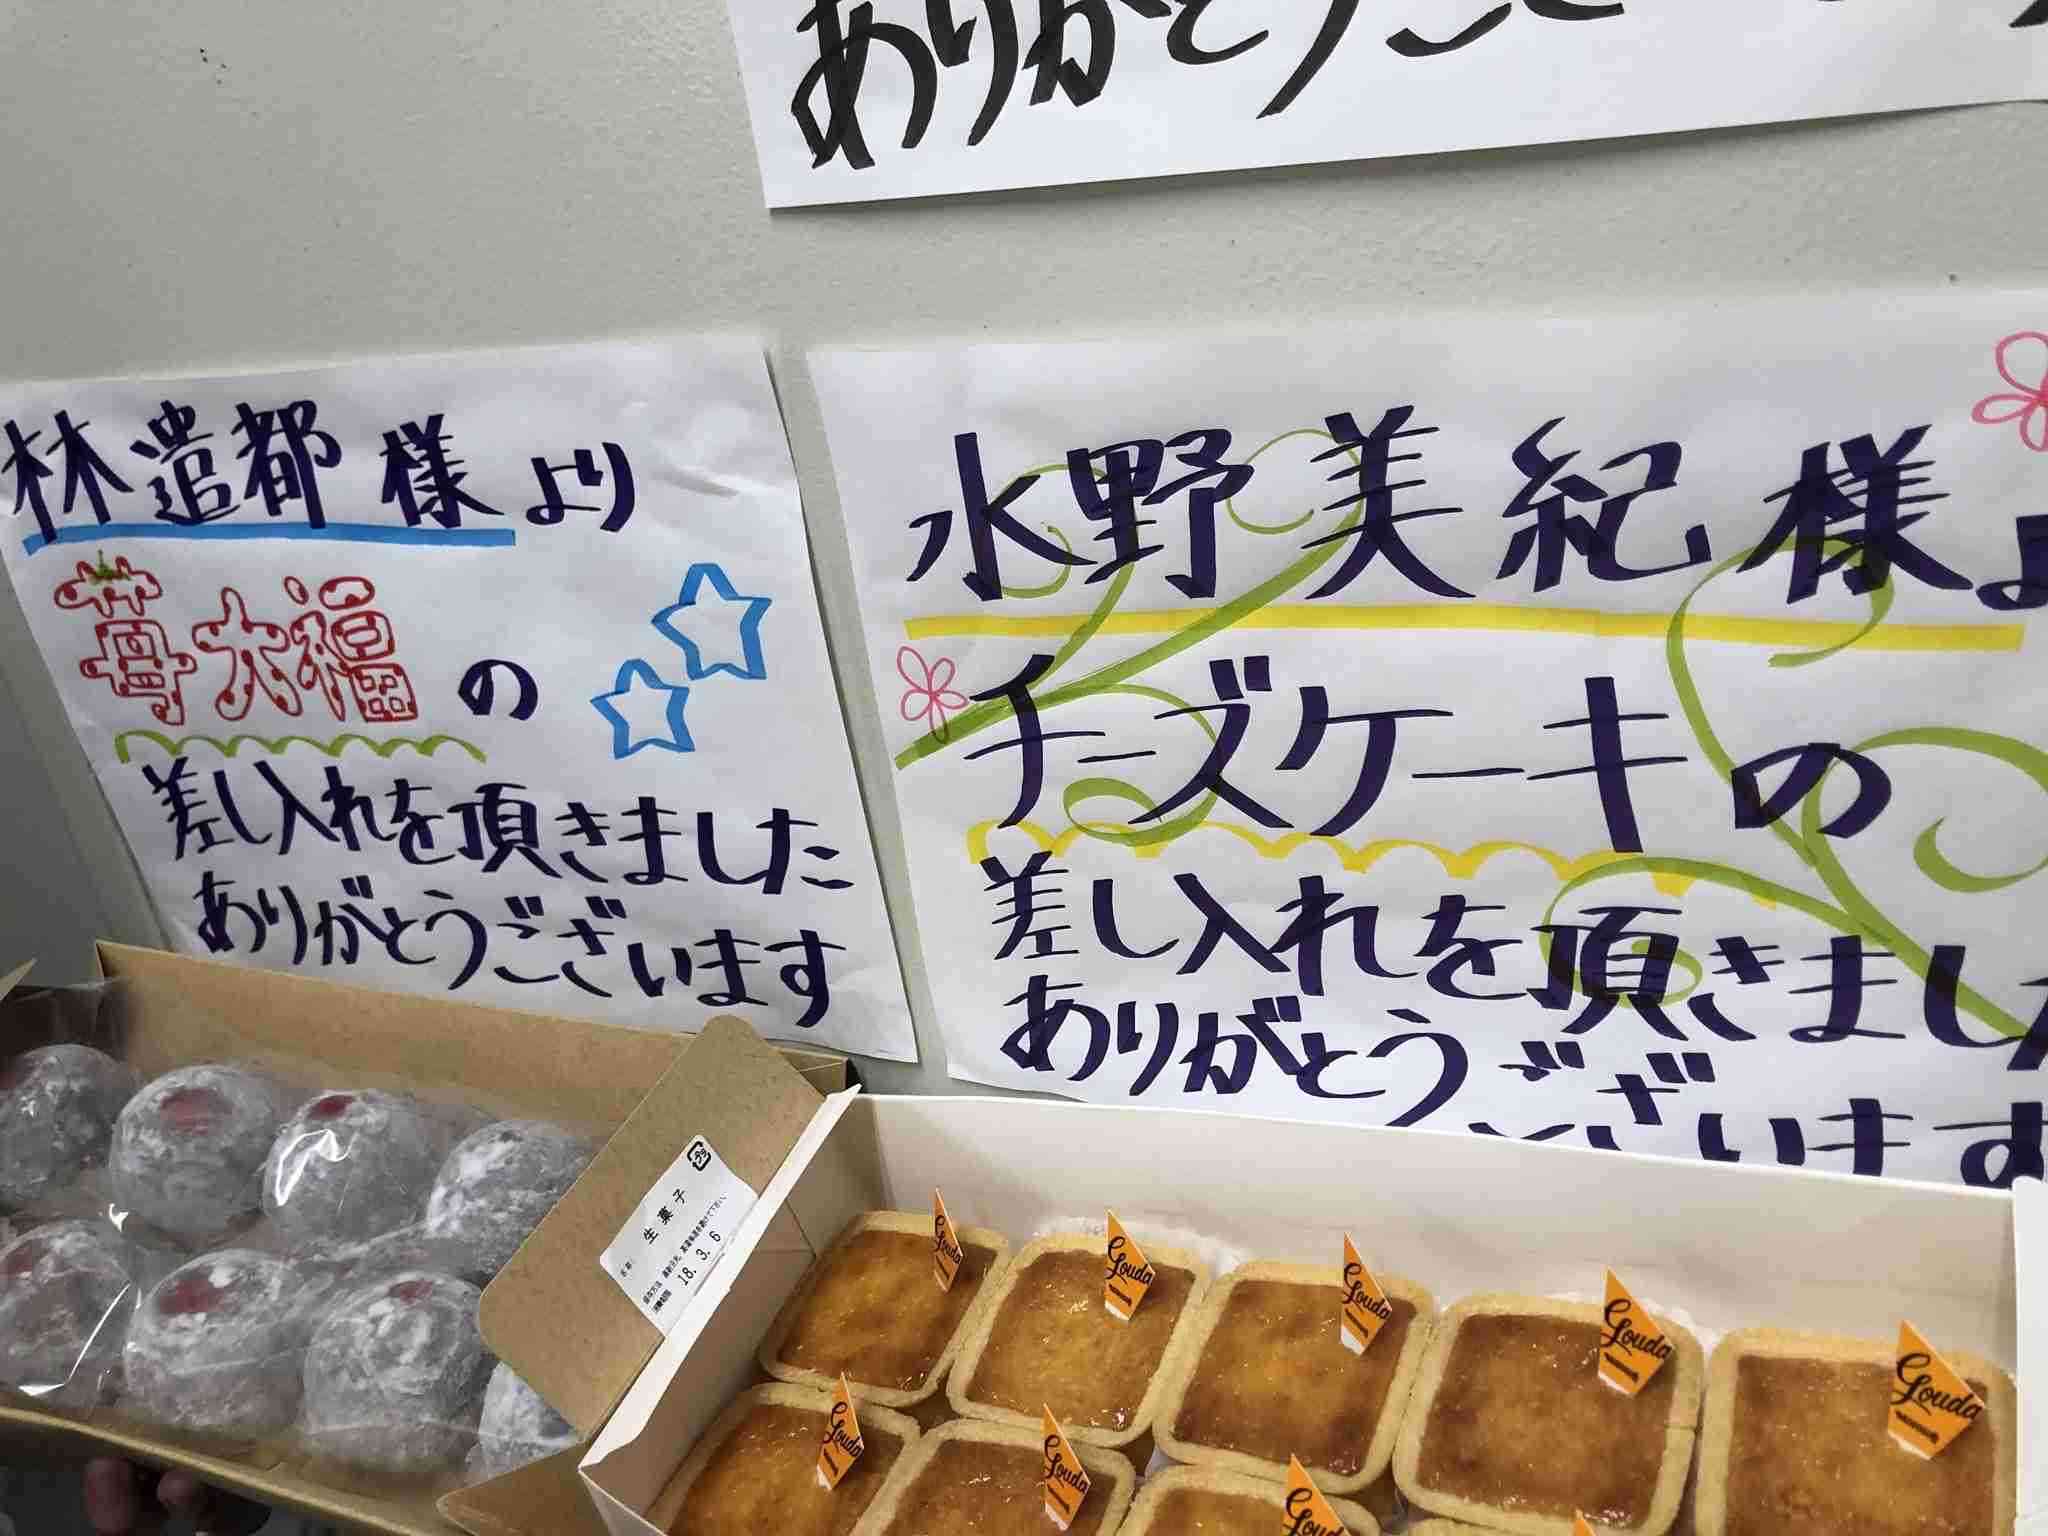 ありがとうござ
林遣都様より
苺大福の
差し入れを頂きました
ありがとうございます
水野美紀様よ
チーズケーキの
差し入れを頂きました
ありがとうございます
生菓子
18.3.6
Gouda
Gouda
Gouda
Gouda
Gouda
Gouda
Gouda
Gouda